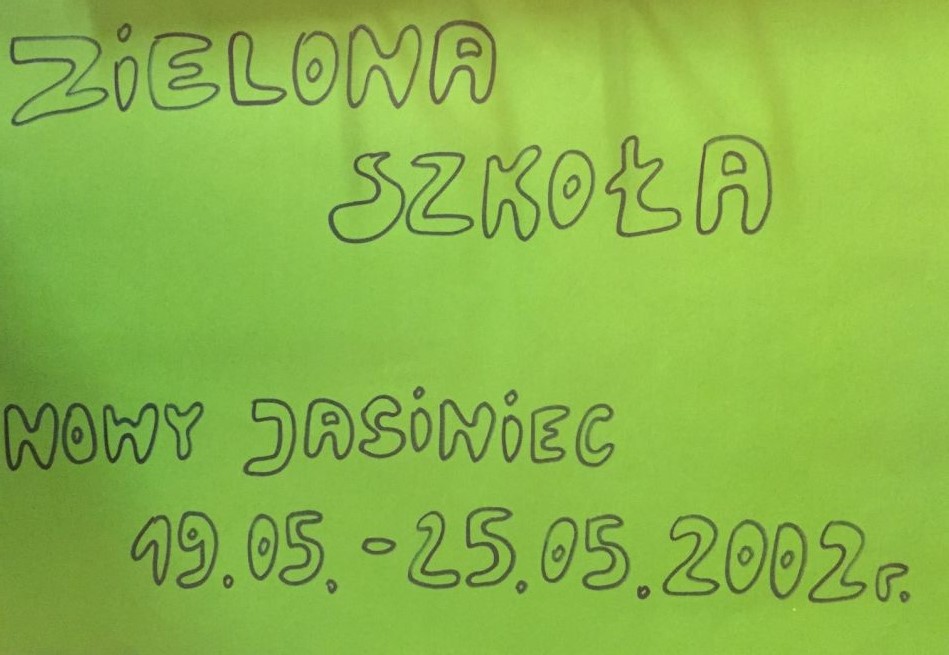 ZiELONA
SZKOŁA
NOWY JASiNiEC
19.05.-25.05.2002r.